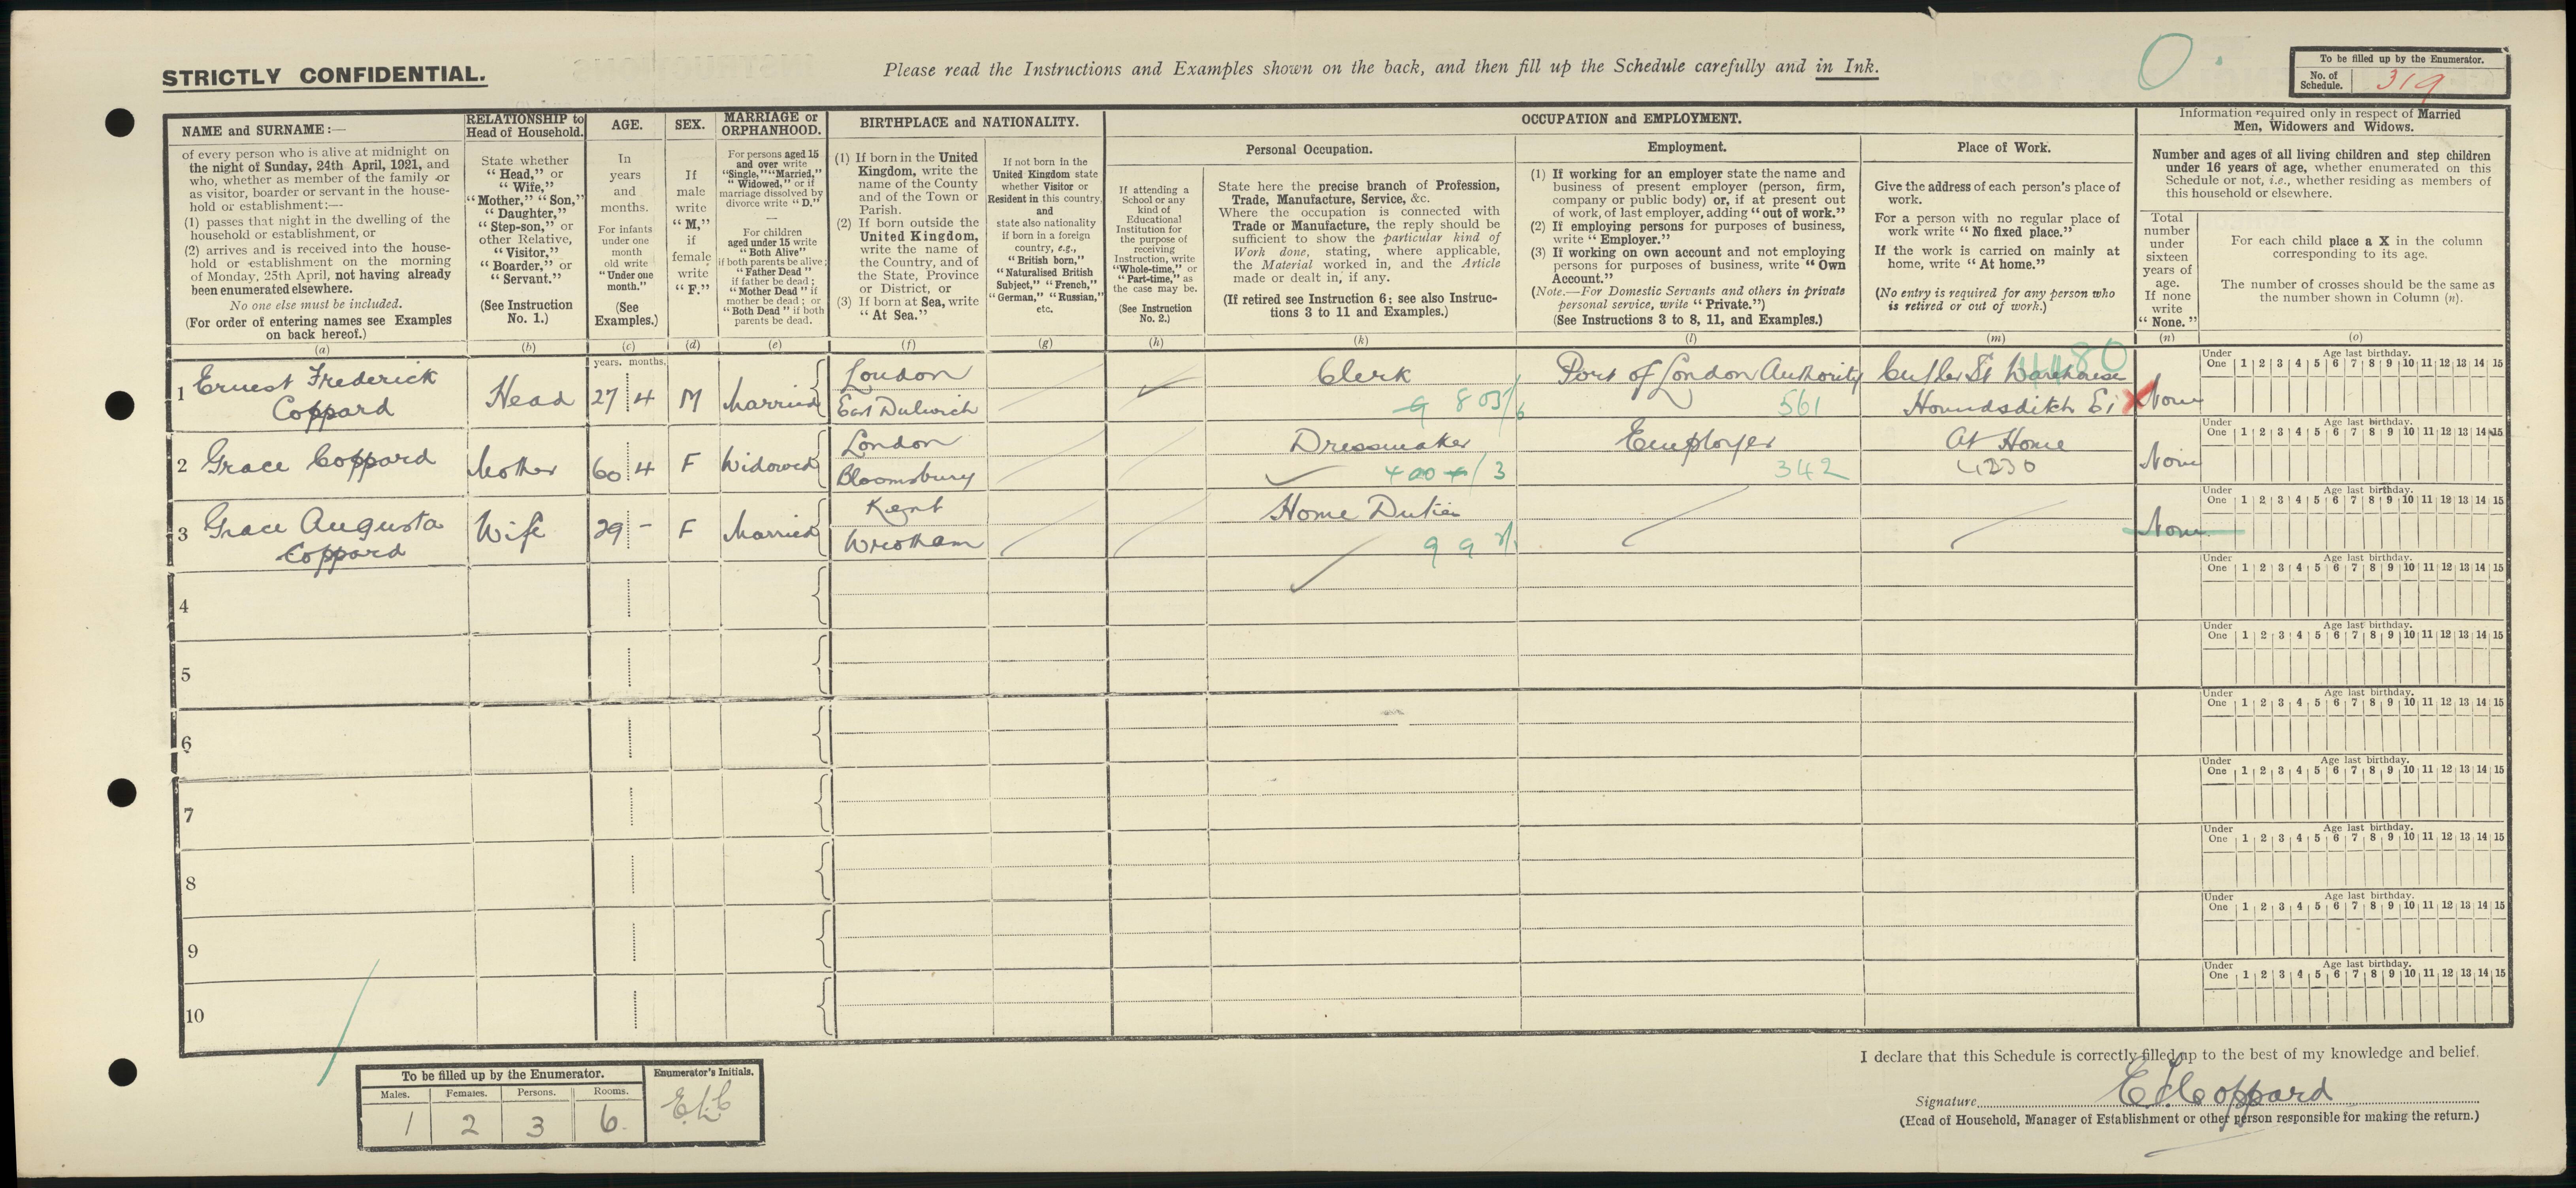 STRICTLY CONFIDENTIAL.
Please read the Instructions and Examples shown on the back, and then fill up the Schedule carefully and in Ink.
To be filled up by the Enumerator.
No. of Schedule. 319
NAME and SURNAME:—
of every person who is alive at midnight on
the night of Sunday, 24th April, 1921, and
who, whether as member of the family or
as visitor, boarder or servant in the house-
hold or establishment:—
(1) passes that night in the dwelling of the
household or establishment, or
(2) arrives and is received into the house-
hold or establishment on the morning
of Monday, 25th April, not having already
been enumerated elsewhere.
No one else must be included.
(For order of entering names see Examples
on back hereof.)
(a)
RELATIONSHIP to
Head of Household.
State whether
"Head," or
"Wife,"
"Mother," "Son,"
"Daughter,"
"Step-son," or
other Relative,
"Visitor,"
"Boarder," or
"Servant."
(See Instruction
No. 1.)
(b)
AGE.
In
years
and
months.
For infants
under one
month
old write
"Under one
month."
(See
Examples.)
(c)
SEX.
If
male
write
"M,"
if
female
write
"F."
(d)
MARRIAGE or
ORPHANHOOD.
For persons aged 15
and over write
"Single," "Married,"
"Widowed," or if
marriage dissolved by
divorce write "D."
—
For children
aged under 15 write
"Both Alive"
if both parents be alive;
"Father Dead"
if father be dead;
"Mother Dead" if
mother be dead; or
"Both Dead" if both
parents be dead.
(e)
BIRTHPLACE and NATIONALITY.
(1) If born in the United
Kingdom, write the
name of the County
and of the Town or
Parish.
(2) If born outside the
United Kingdom,
write the name of
the Country, and of
the State, Province
or District, or
(3) If born at Sea, write
"At Sea."
(f)
If not born in the
United Kingdom state
whether Visitor or
Resident in this country,
and
state also nationality
if born in a foreign
country, e.g.,
"British born,"
"Naturalised British
Subject," "French,"
"German," "Russian,"
etc.
(g)
OCCUPATION and EMPLOYMENT.
If attending a
School or any
kind of
Educational
Institution for
the purpose of
receiving
Instruction, write
"Whole-time," or
"Part-time," as
the case may be.
(See Instruction
No. 2.)
(h)
Personal Occupation.
State here the precise branch of Profession,
Trade, Manufacture, Service, &c.
Where the occupation is connected with
Trade or Manufacture, the reply should be
sufficient to show the particular kind of
Work done, stating, where applicable,
the Material worked in, and the Article
made or dealt in, if any.
(If retired see Instruction 6; see also Instruc-
tions 3 to 11 and Examples.)
(k)
Employment.
(1) If working for an employer state the name and
business of present employer (person, firm,
company or public body) or, if at present out
of work, of last employer, adding "out of work."
(2) If employing persons for purposes of business,
write "Employer."
(3) If working on own account and not employing
persons for purposes of business, write "Own
Account."
(Note.—For Domestic Servants and others in private
personal service, write "Private.")
(See Instructions 3 to 8, 11, and Examples.)
(l)
Place of Work.
Give the address of each person's place of
work.
For a person with no regular place of
work write "No fixed place."
If the work is carried on mainly at
home, write "At home."
(No entry is required for any person who
is retired or out of work.)
(m)
Information required only in respect of Married
Men, Widowers and Widows.
Number and ages of all living children and step children
under 16 years of age, whether enumerated on this
Schedule or not, i.e., whether residing as members of
this household or elsewhere.
Total
number
under
sixteen
years of
age.
If none
write
"None."
(n)
For each child place a X in the column
corresponding to its age.
The number of crosses should be the same as
the number shown in Column (n).
(o)
years. months.
1 Ernest Frederick
Coppard
Head 27 4 M Married
London
East Dulwich
Clerk
Port of London Authority
561
Cutler St Warehouse
Houndsditch E1
None
Under One 1 2 3 4 5 6 7 8 9 10 11 12 13 14 15
Age last birthday.
2 Grace Coppard
Mother 60 4 F Widowed
London
Bloomsbury
Dressmaker
Employer
342
At Home
None
Under One 1 2 3 4 5 6 7 8 9 10 11 12 13 14 15
Age last birthday.
3 Grace Augusta
Coppard
Wife 29 - F Married
Kent
Wrotham
Home Duties
None
Under One 1 2 3 4 5 6 7 8 9 10 11 12 13 14 15
Age last birthday.
4
Under One 1 2 3 4 5 6 7 8 9 10 11 12 13 14 15
Age last birthday.
5
Under One 1 2 3 4 5 6 7 8 9 10 11 12 13 14 15
Age last birthday.
6
Under One 1 2 3 4 5 6 7 8 9 10 11 12 13 14 15
Age last birthday.
7
Under One 1 2 3 4 5 6 7 8 9 10 11 12 13 14 15
Age last birthday.
8
Under One 1 2 3 4 5 6 7 8 9 10 11 12 13 14 15
Age last birthday.
9
Under One 1 2 3 4 5 6 7 8 9 10 11 12 13 14 15
Age last birthday.
10
Under One 1 2 3 4 5 6 7 8 9 10 11 12 13 14 15
Age last birthday.
To be filled up by the Enumerator.
Males. Females. Persons. Rooms.
1 2 3 6
Enumerator's Initials.
I declare that this Schedule is correctly filled up to the best of my knowledge and belief.
Signature E F Coppard
(Head of Household, Manager of Establishment or other person responsible for making the return.)